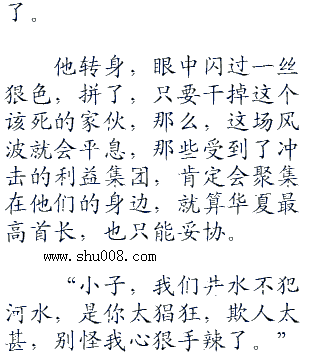 了。
他转身，眼中闪过一丝
狠色，拼了，只要干掉这个
该死的家伙，那么，这场风
波就会平息，那些受到了冲
击的利益集团，肯定会聚集
在他们的身边，就算华夏最
高首长，也只能妥协。
www.shu008.com
“小子，我们井水不犯
河水，是你太猖狂，欺人太
甚，别怪我心狠手辣了。”